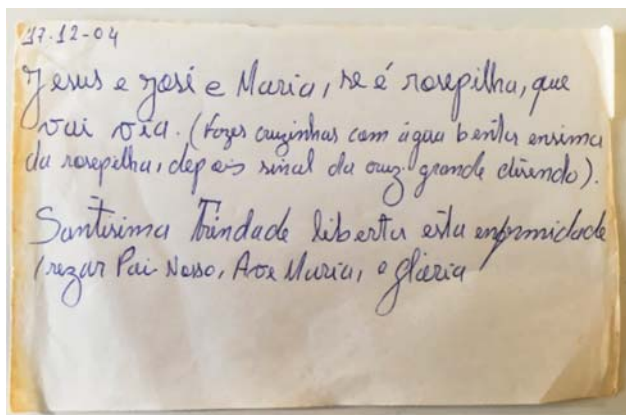 17.12-04
Jesus e José e Maria, se é rosepilha, que
vai via. (fazer cruzinhas com água benta ensima
da rosepilha, depois sinal da cruz grande dizendo).
Santisima Trindade liberta esta enfirmidade
(rezar Pai Nosso, Ave Maria, e glória